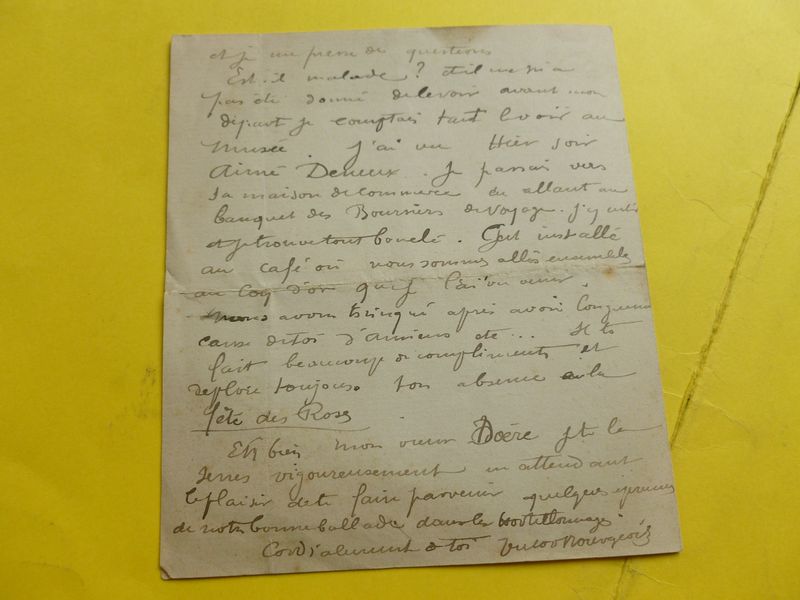 et je un presse de questions
Est-il malade ? Il ne m'a
pas été donné de le voir avant mon
départ je comptais tant le voir au
musée. J'ai vu Hier soir
Aimé Deneux. Je passais vers
sa maison de commerce en allant au
banquet des Boursiers de Voyage. J'y
et je trouve tout bouclé. C'est installé
au café où nous sommes allés ensemble
au Coq d'or que je l'ai vu
Nous avons trinqué après avoir longuement
causé de toi d'Amiens etc... Il te
fait beaucoup de compliments et
déplore toujours ton absence à la
fête des Roses
Eh bien mon vieux je te la
serres vigoureusement en attendant
le plaisir de te faire parvenir quelques épreuves
de notre bonne ballade dans les
Cordialement à toi